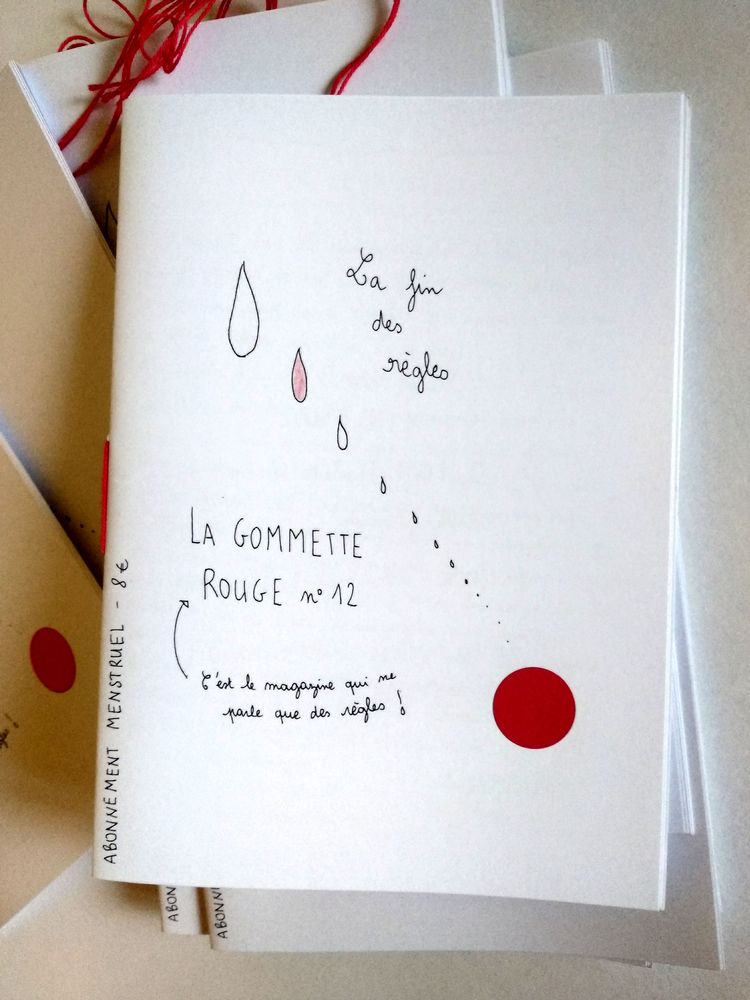 La fin
des
règles
LA GOMMETTE
ROUGE n° 12
C'est le magazine qui ne
parle que des règles !
ABONNEMENT MENSTRUEL - 8€
ABON
ABONN